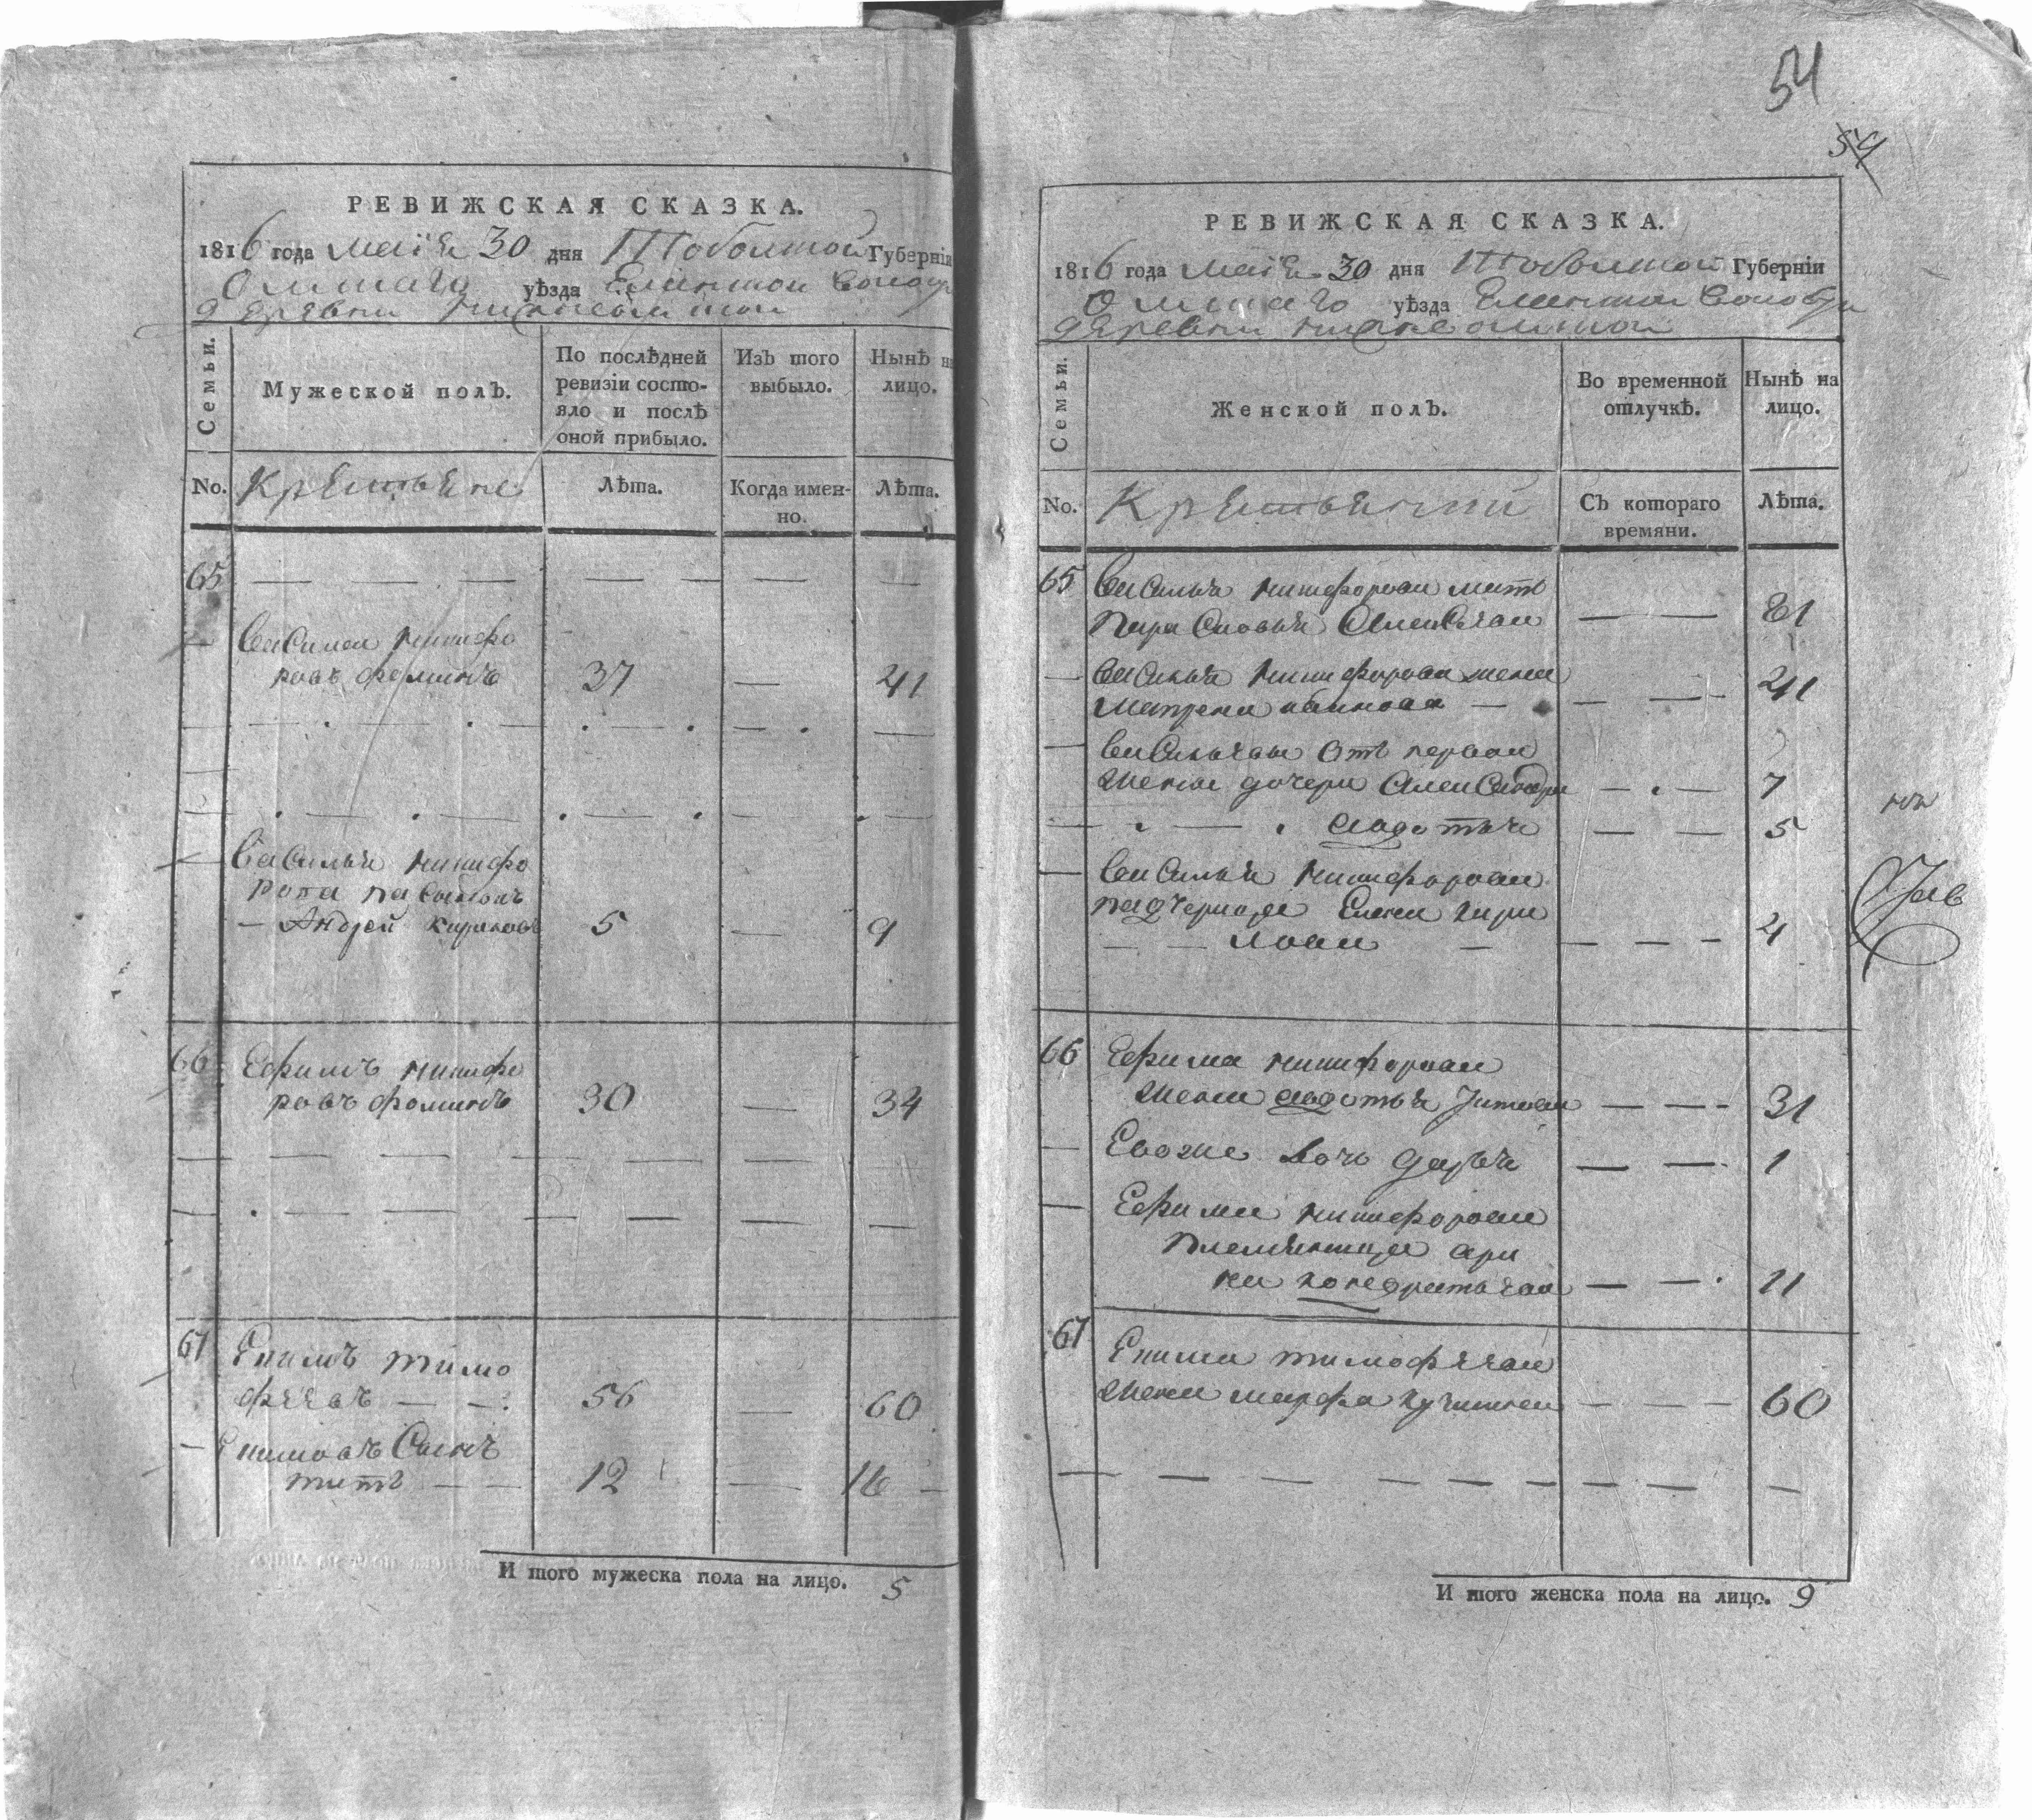 РЕВИЖСКАЯ СКАЗКА.
1816 года маія 30 дня Тобольской Губерніи
Омскаго уѣзда Еланской волости
деревни
Семьи.
Мужеской полъ.
По послѣдней ревизіи состо-
яло и послѣ оной прибыло.
Изъ того выбыло.
Нынѣ на лицо.
No.
Крестьяне
Лѣта.
Когда имен-
но.
Лѣта.
65
Василей Никифо
ровъ Фоминъ 37 — 41
Васильи Никифо
рова пасынокъ
— Андрей Кириловъ 5 — 9
66 Ефимъ Никифо
ровъ Фоминъ 30 — 34
67 Екимъ Тимо
фѣевъ — — 56 — 60
— Екимовъ сынъ
Титъ — — 12 — 16
И того мужеска пола на лицо. 5
54
54
РЕВИЖСКАЯ СКАЗКА.
1816 года маія 30 дня Тобольской Губерніи
Омскаго уѣзда Еланской волости
деревни
Семьи.
Женской полъ.
Во временной отлучкѣ.
Нынѣ на лицо.
No.
Крестьянски
Съ котораго времяни.
Лѣта.
65 Васильи Никифорова мать
Парасковья Алексѣева — — 81
— Васильи Никифорова жена
Матрена — — — 41
— Васильевы отъ первой
жены дочери Александра — 7
Авдотья — — 5
— Васильи Никифорова
падчерица Елена Кири
лова — — — 4
66 Ефима Никифорова
жена Авдотья — — 31
— Ево же дочь Дарья — — 1
— Ефима Никифорова
племянница Ари
на Кондратьева — — 11
67 Екима Тимофѣева
жена Марфа — — — 60
И того женска пола на лицо. 9